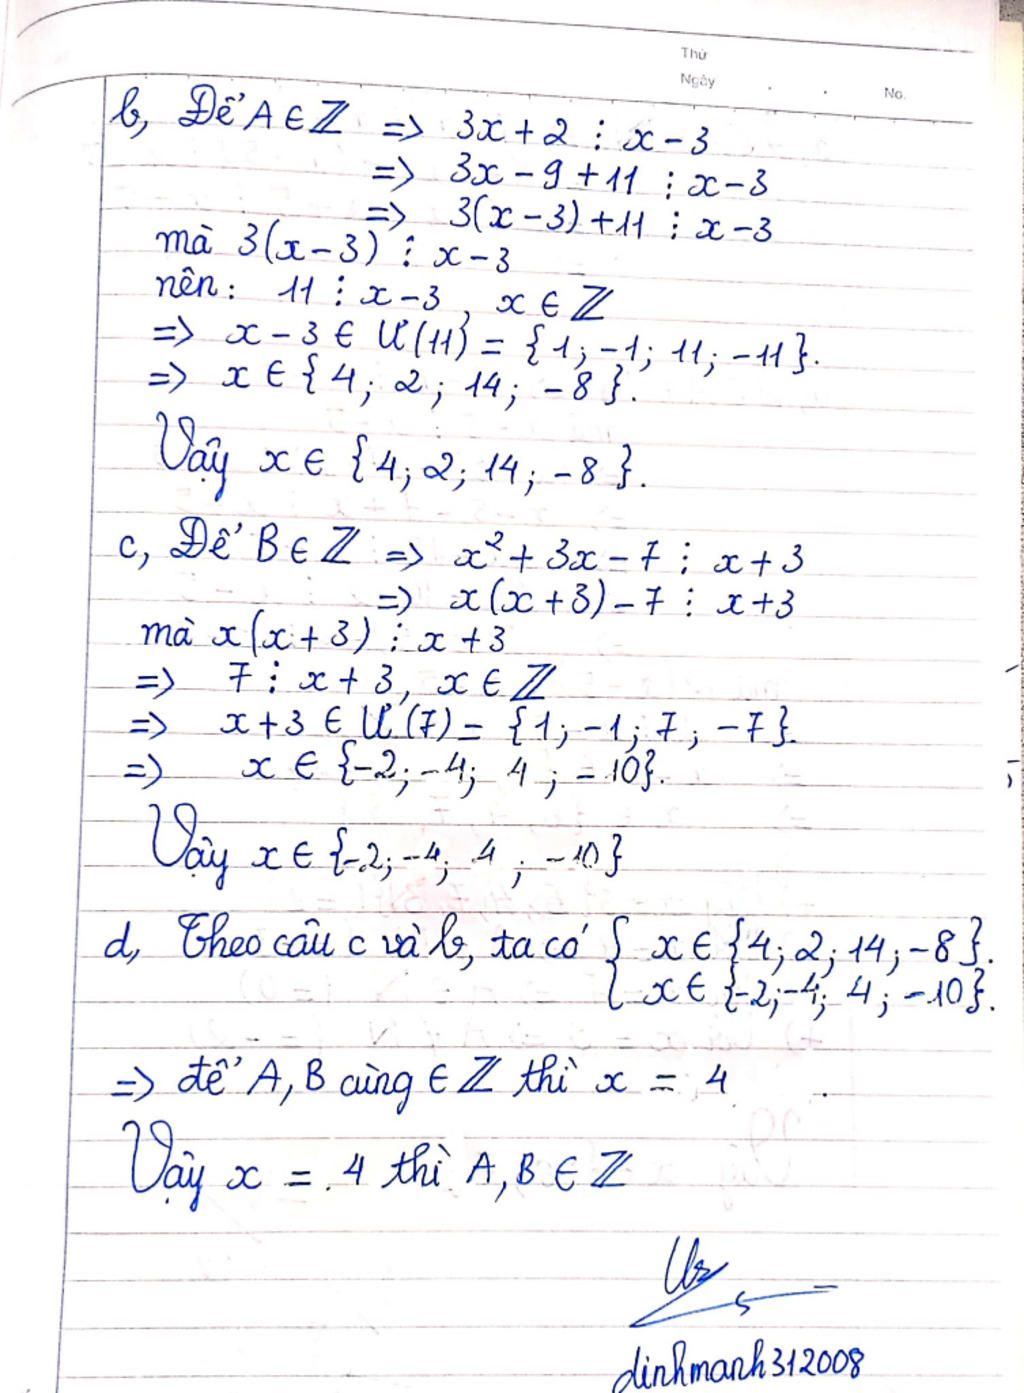 Thứ
Ngày . . No.
b, Để A ∈ ℤ => 3x + 2 ⋮ x - 3
=> 3x - 9 + 11 ⋮ x - 3
=> 3(x - 3) + 11 ⋮ x - 3
mà 3(x - 3) ⋮ x - 3
nên: 11 ⋮ x - 3, x ∈ ℤ
=> x - 3 ∈ Ư(11) = {1; -1; 11; -11}.
=> x ∈ {4; 2; 14; -8}.
Vậy x ∈ {4; 2; 14; -8}.
c, Để B ∈ ℤ => x² + 3x - 7 ⋮ x + 3
=> x(x + 3) - 7 ⋮ x + 3
mà x(x + 3) ⋮ x + 3
=> 7 ⋮ x + 3, x ∈ ℤ
=> x + 3 ∈ Ư(7) = {1; -1; 7; -7}.
=> x ∈ {-2; -4; 4; -10}.
Vậy x ∈ {-2; -4; 4; -10}
d, Theo câu c và b, ta có { x ∈ {4; 2; 14; -8}.
x ∈ {-2; -4; 4; -10}.
=> để A, B cùng ∈ ℤ thì x = 4 .
Vậy x = 4 thì A, B ∈ ℤ
dinhmanh312008